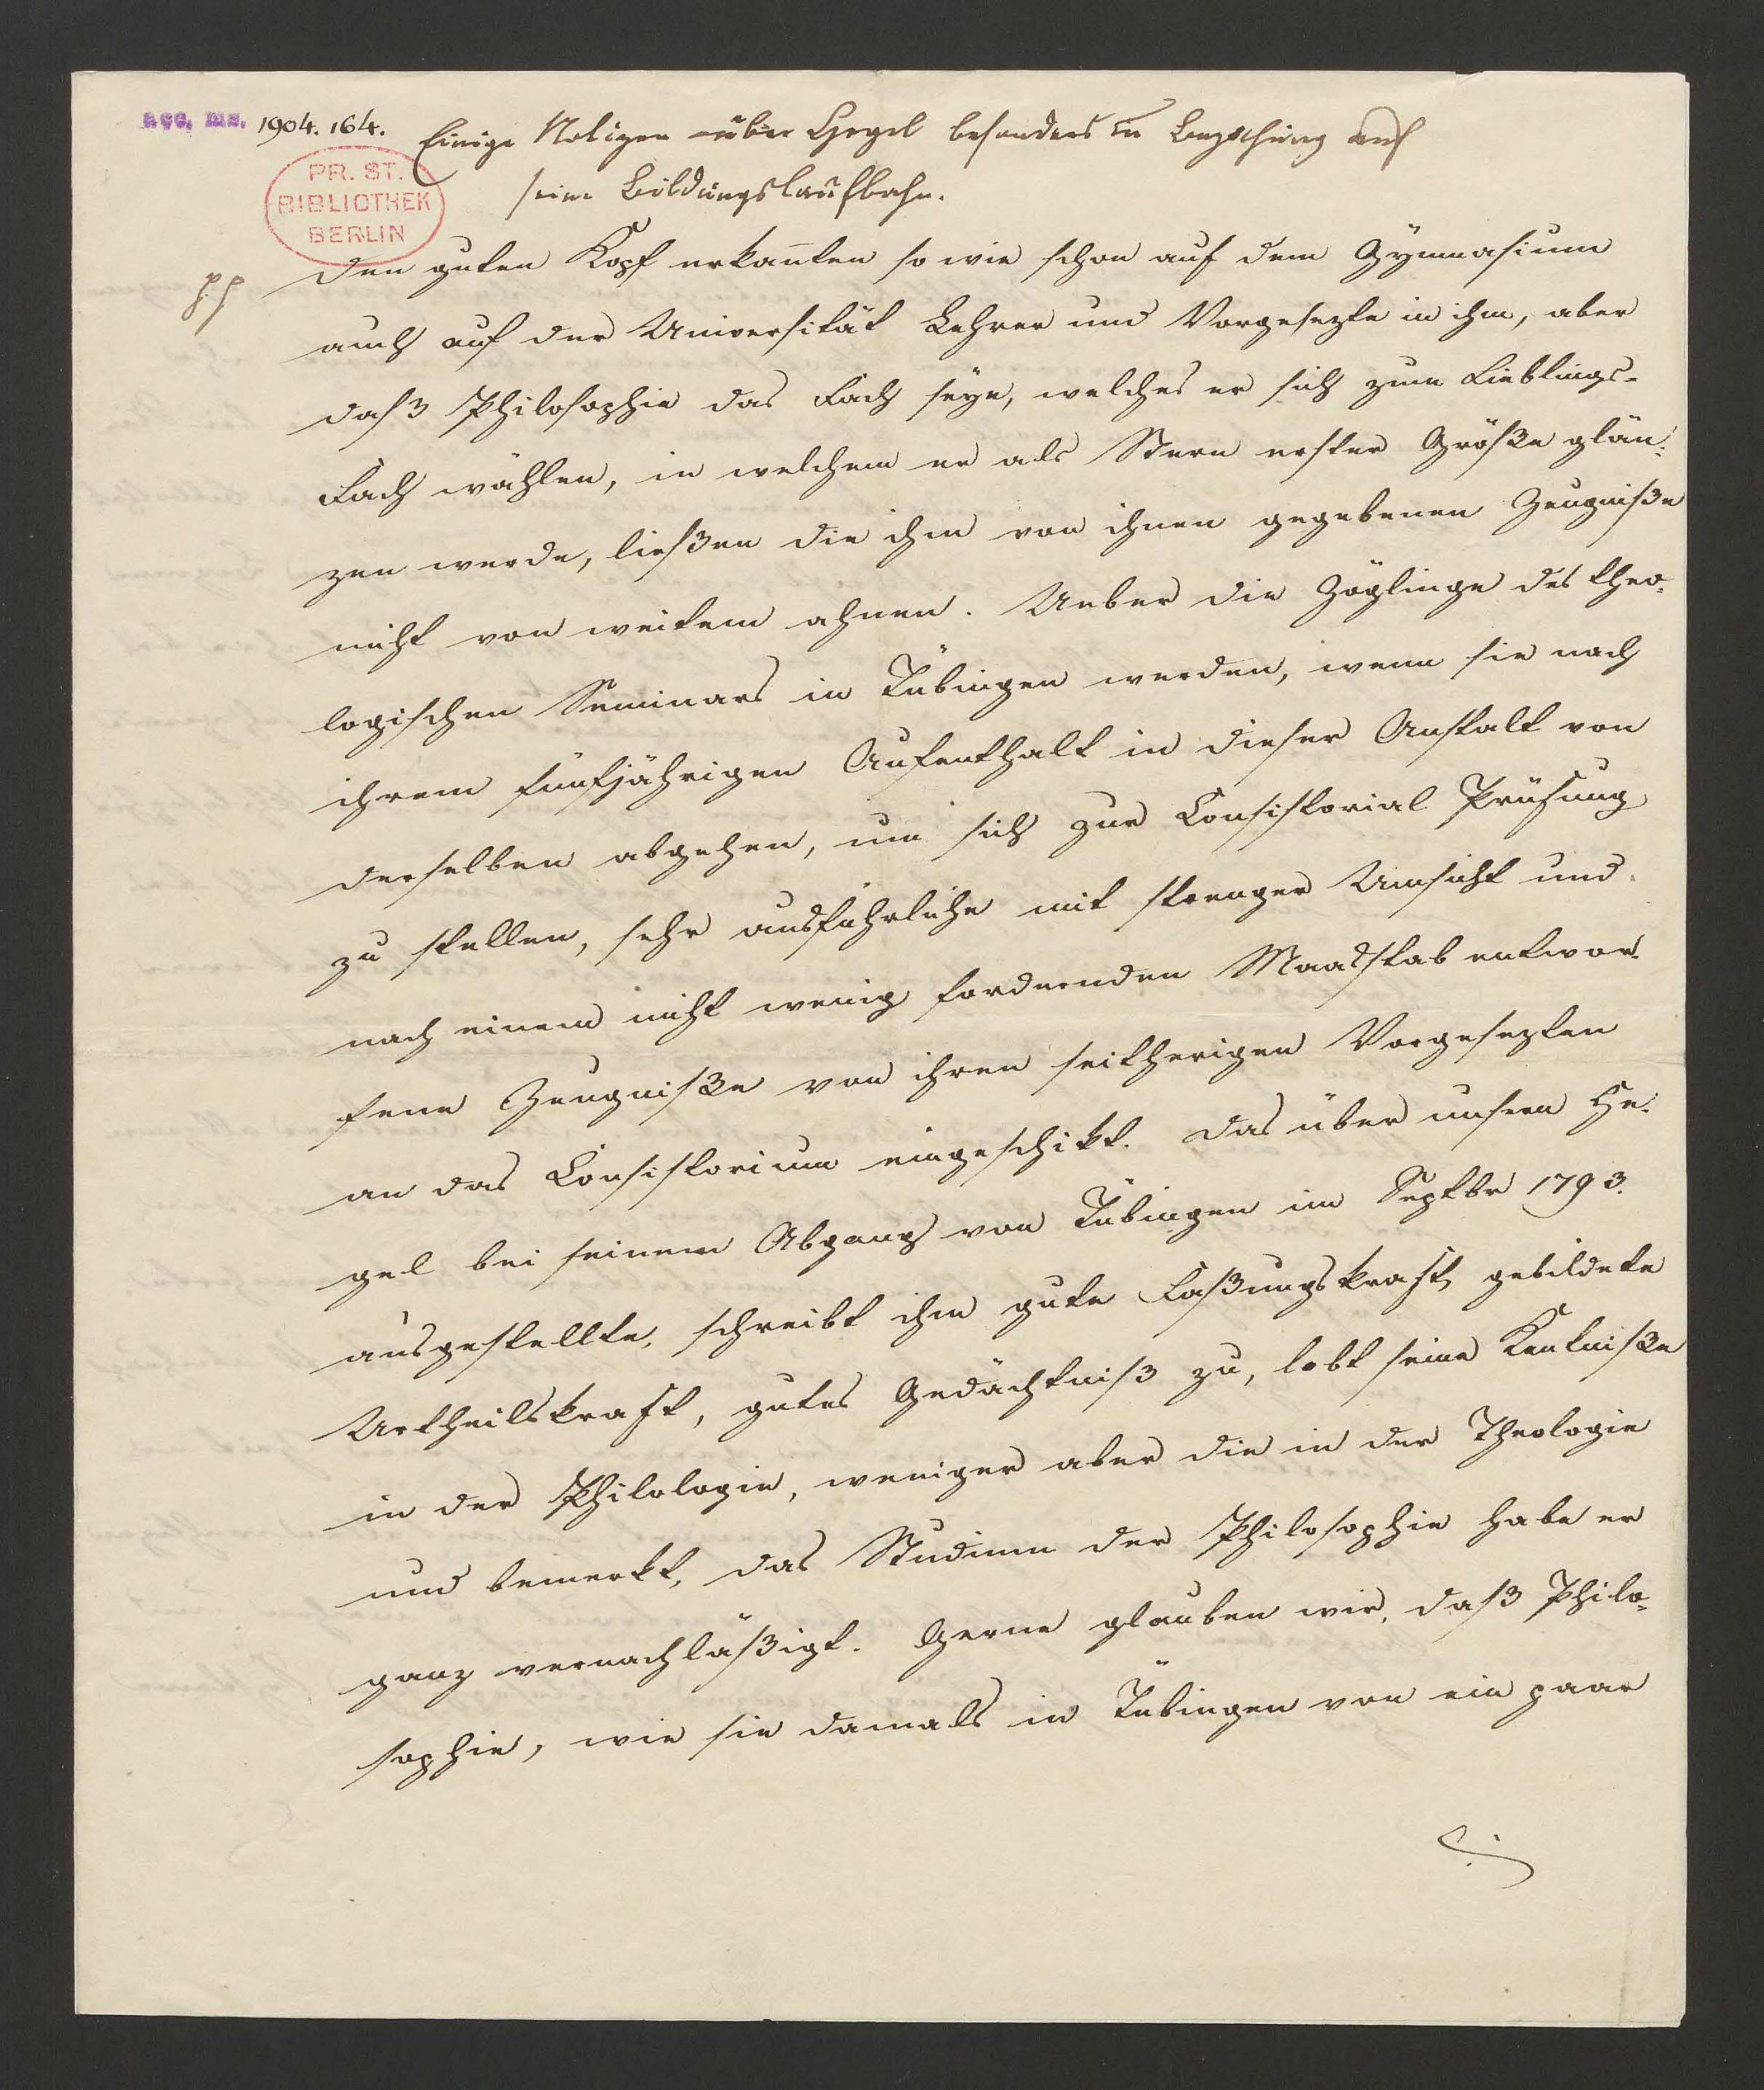 acc. ms. 1904.164.
Einige Notizen über Hegel besonders in Beziehung auf
seine Bildungslaufbahn.
PR. ST.
BIBLIOTHEK
BERLIN
Den guten Kopf erkan̄ten so wie schon auf dem Gÿmnasium
auch auf der Universität Lehrer und Vorgesezte in ihm, aber
daß Philosophie das Fach seÿe, welches er sich zum Lieblings-
Fach wählen, in welchem er als Stern erster Größe glän-
zen werde, ließen die ihm von ihnen gegebenen Zeugniße
nicht von weitem ahnen. Ueber die Zöglinge des theo-
logischen Seminars in Tübingen werden, wenn sie nach
ihrem fünfjährigen Aufenthalt in dieser Anstalt von
derselben abgehen, um sich zur Consistorial Prüfung
zu stellen, sehr ausführliche mit strenger Umsicht und
nach einem nicht wenig fordernden Maasstab entwor
fene Zeugniße von ihren seitherigen Vorgesezten
an das Consistorium eingeschikt. Das über unsern He-
gel bei seinem Abgang von Tübingen im Septbr 1793.
ausgestellte, schreibt ihm gute Faßungskraft, gebildete
Urtheilskraft, gutes Gedächtniß zu, lobt seine Kentniße
in der Philologie, weniger aber die in der Theologie
und bemerkt, das Studium der Philosophie habe er
ganz vernachläßigt. Gerne glauben wir, daß Philo-
sophie, wie sie damals in Tübingen von ein paar